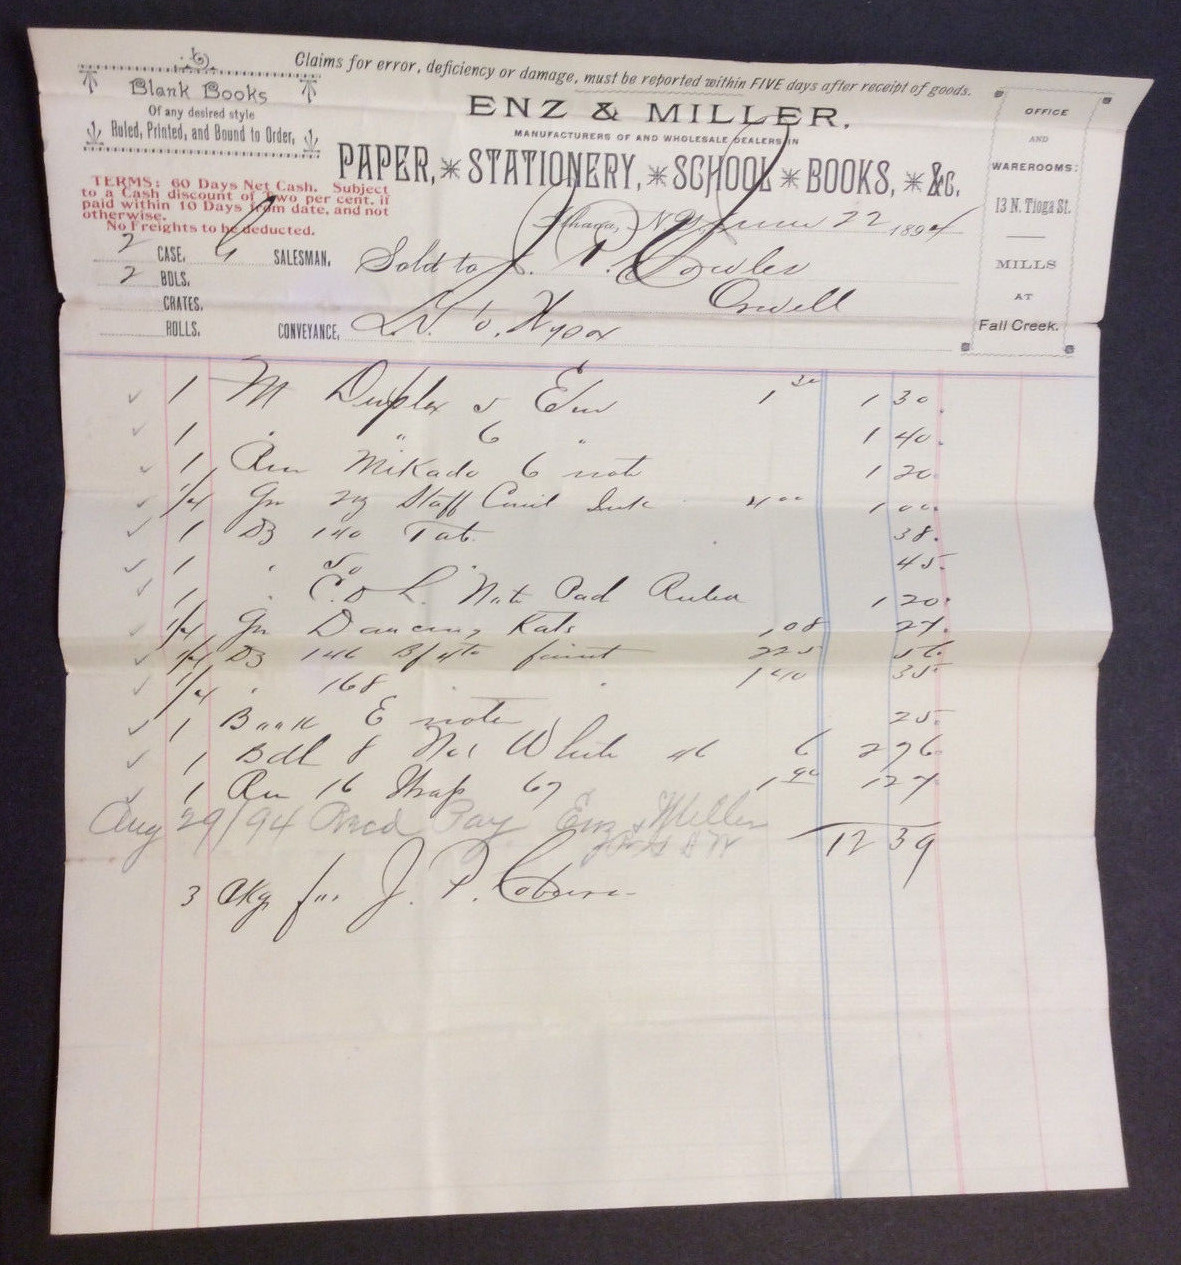 Claims for error, deficiency or damage, must be reported within FIVE days after receipt of goods.
Blank Books
Of any desired style
Ruled, Printed, and Bound to Order,
ENZ & MILLER,
MANUFACTURERS OF AND WHOLESALE DEALERS IN
PAPER, * STATIONERY, * SCHOOL * BOOKS, * &C.
OFFICE
AND
WAREROOMS:
13 N. Tioga St.
MILLS
AT
Fall Creek.
TERMS: 60 Days Net Cash. Subject
to a Cash discount of Two per cent. if
paid within 10 Days from date, and not
otherwise.
No Freights to be deducted.
Ithaca, N.Y. June 22 1894
2 CASE, SALESMAN,
2 BDLS.
CRATES.
ROLLS. CONVEYANCE,
Sold to J. P.
Orwell
1 M Duplex 5 Env 1 30 1 30
1 " " 6 " 1 40
1 Rm Mikado 6 note 1 20
1/4 Gr 2oz Staff Ink 4 00 1 00
1 Dz 140 Tab. 38
1 " 50 " 45
1 " Note Pad Ruled 1 20
1/4 Gr Dancing Kats 1 08 27
1/4 Dz 146 faint 2 25 56
1/4 " 168 " " 1 40 35
1 E note 25
1 Bdl 8 No 1 White 46 6 2 76
1 Rm 16 Wrap 67 1 90 1 27
12 39
Aug 29/94 Recd Pay Enz & Miller
3 pkgs for J. P.